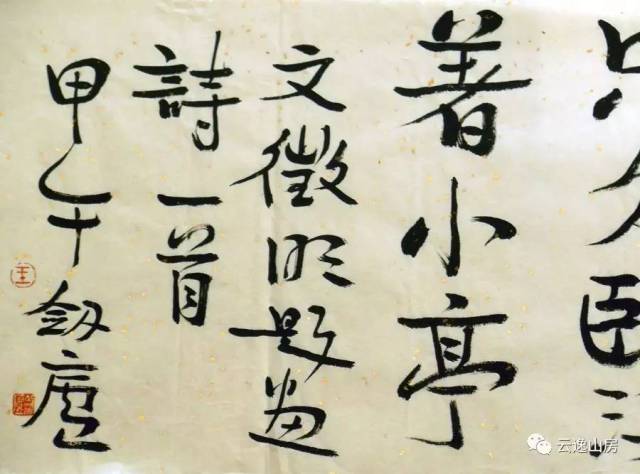 著小亭
文徵明題畫
詩一首
甲午劍廬
王
云逸山房